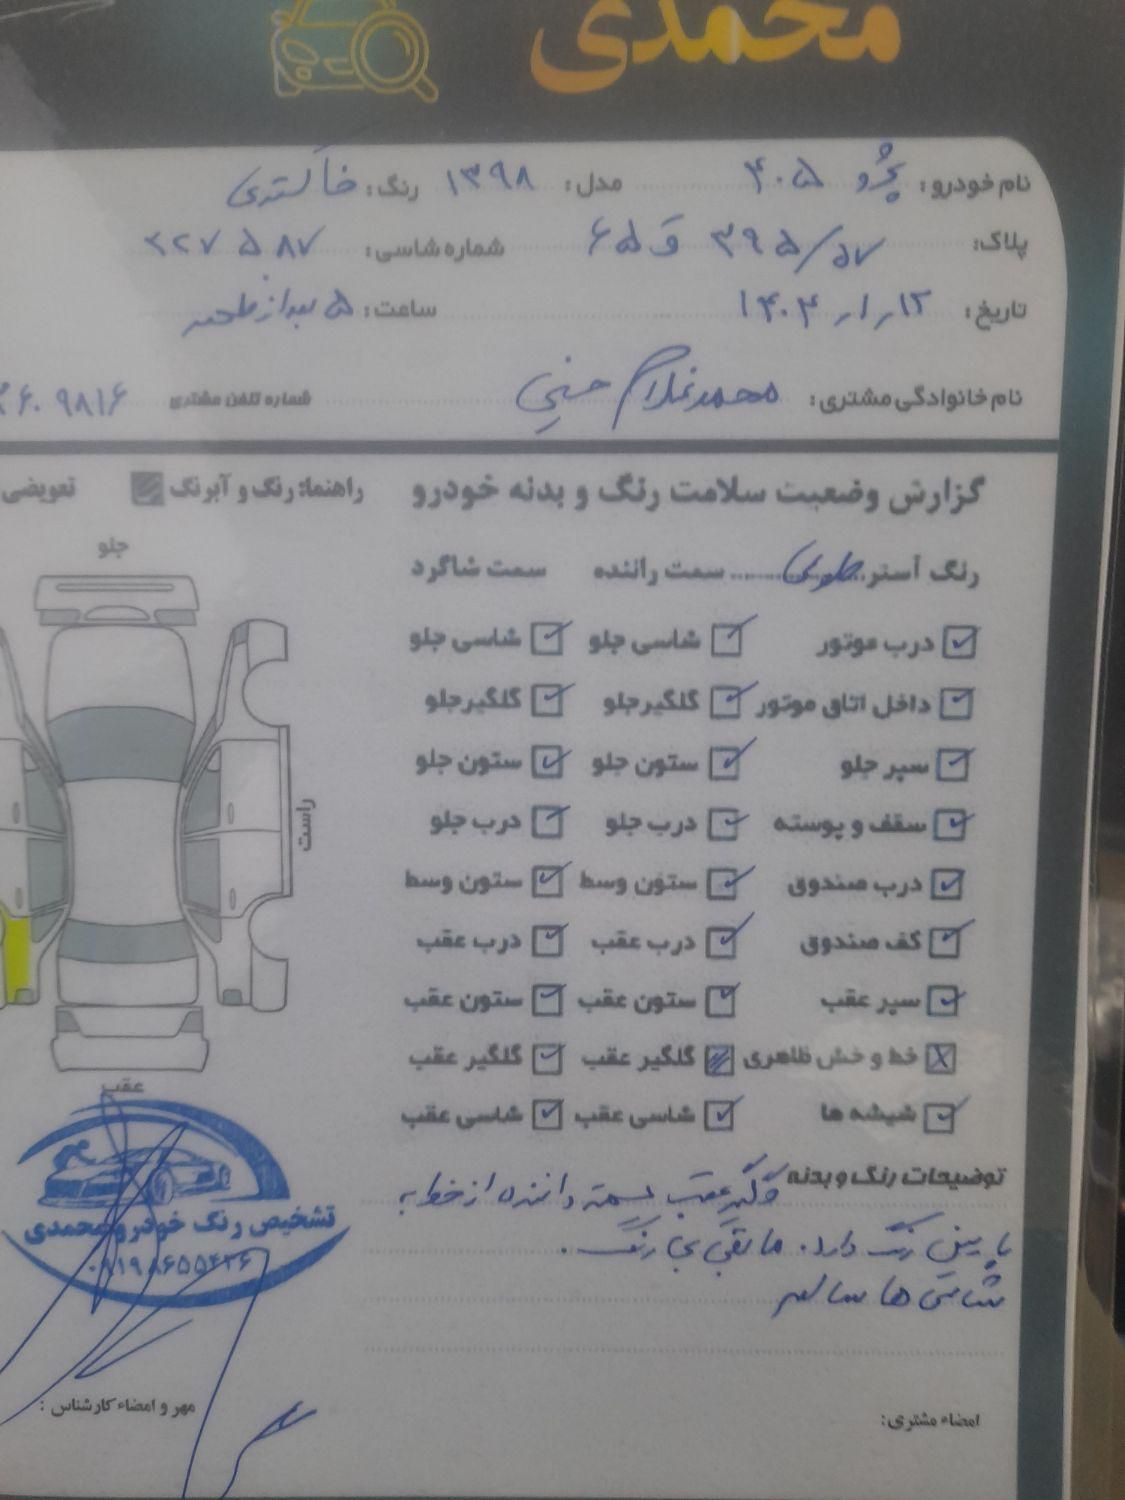 محمدی
نام خودرو: پژو ۴۰۵ مدل: ۱۳۹۸ رنگ: خاکستری
پلاک: ۳۹۵/۵۷ ق ۶۵ شماره شاسی: ۲۲۷۵۸۷
تاریخ: ۱۴۰۳/۱/۱۲ ساعت: ۵ بعدازظهر
نام خانوادگی مشتری: محمدغلام حسینی شماره تلفن مشتری ۹۸۱۶
گزارش وضعیت سلامت رنگ و بدنه خودرو راهنما: رنگ و آبرنگ تعویضی
رنگ آستر طوسی سمت راننده سمت شاگرد جلو
درب موتور شاسی جلو شاسی جلو
داخل اتاق موتور گلگیر جلو گلگیر جلو
سپر جلو ستون جلو ستون جلو
سقف و پوسته درب جلو درب جلو راست
درب صندوق ستون وسط ستون وسط
کف صندوق درب عقب درب عقب
سپر عقب ستون عقب ستون عقب
خط و خش ظاهری گلگیر عقب گلگیر عقب عقب
شیشه ها شاسی عقب شاسی عقب
توضیحات رنگ و بدنه گلگیر عقب سمت راننده از خط به
پایین رنگ دارد. مابقی بی رنگ.
شاسی ها سالم
تشخیص رنگ خودرو محمدی
امضاء مشتری: مهر و امضاء کارشناس: